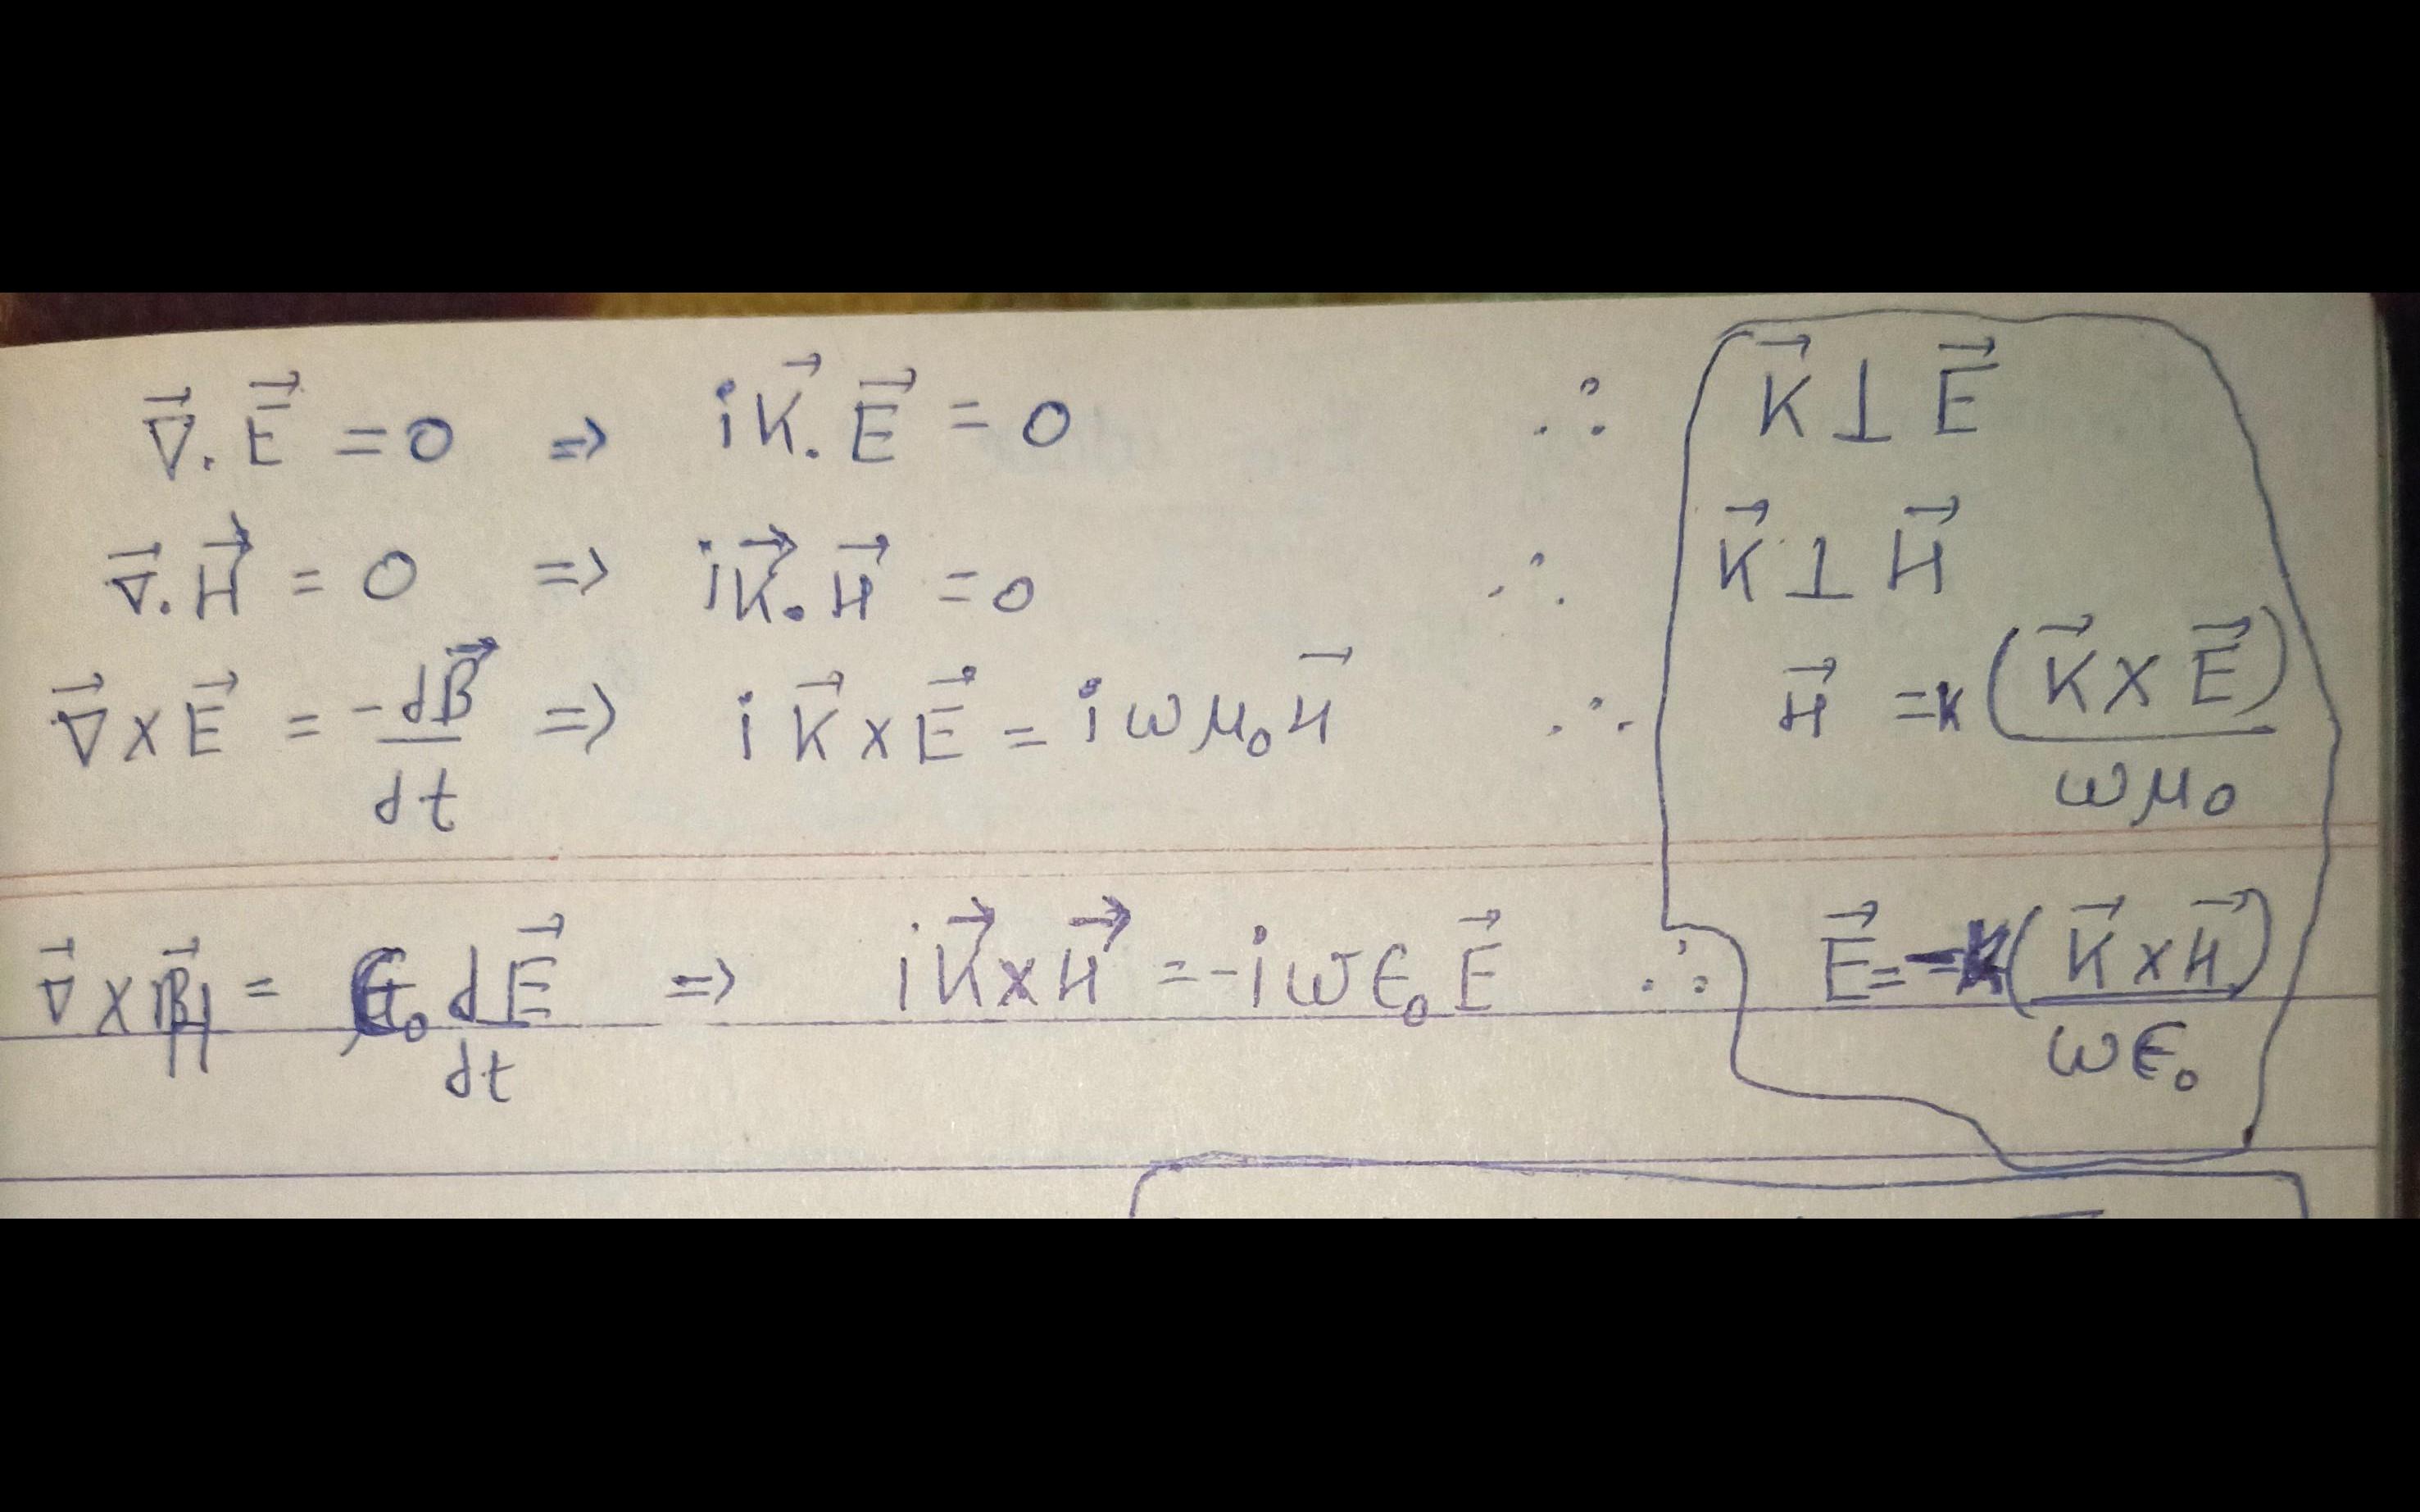 ∇⃗ . E⃗ = 0 ⇒ i K⃗ . E⃗ = 0 ∴ K⃗ ⊥ E⃗
∇⃗ . H⃗ = 0 ⇒ i K⃗ . H⃗ = 0 ∴ K⃗ ⊥ H⃗
∇⃗ × E⃗ = -dB⃗/dt ⇒ i K⃗ × E⃗ = i ω μ₀ H⃗ ∴ H⃗ = (K⃗ × E⃗)/ωμ₀
∇⃗ × H⃗ = ϵ₀ dE⃗/dt ⇒ i K⃗ × H⃗ = - i ω ϵ₀ E⃗ ∴ E⃗ = - (K⃗ × H⃗)/ωϵ₀